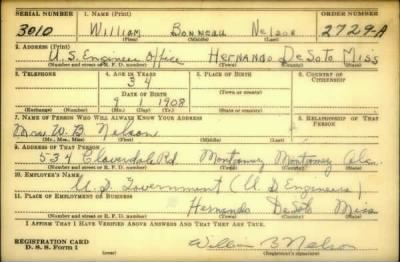 SERIAL NUMBER 1. NAME (Print) ORDER NUMBER
3010 William Bonneau Nelson 2729-A
(First) (Middle) (Last)
2. ADDRESS (Print)
U.S. Engineer Office Hernando DeSoto Miss
(Number and street or R. F. D. number) (Town) (County) (State)
3. TELEPHONE 4. AGE IN YEARS 5. PLACE OF BIRTH 6. COUNTRY OF CITIZENSHIP
34
DATE OF BIRTH (Town or county)
9 6 1908
(Exchange) (Number) (Mo.) (Day) (Yr.) (State or country)
7. NAME OF PERSON WHO WILL ALWAYS KNOW YOUR ADDRESS 8. RELATIONSHIP OF THAT PERSON
Mrs W. B. Nelson
(Mr., Mrs., Miss) (First) (Middle) (Last)
9. ADDRESS OF THAT PERSON
534 Cloverdale Rd Montgomery Montgomery Ala.
(Number and street or R. F. D. number) (Town) (County) (State)
10. EMPLOYER'S NAME
U.S. Government (U S Engineers)
11. PLACE OF EMPLOYMENT OR BUSINESS
Hernando DeSoto Miss
(Number and street or R. F. D. number) (Town) (County) (State)
I AFFIRM THAT I HAVE VERIFIED ABOVE ANSWERS AND THAT THEY ARE TRUE.
REGISTRATION CARD
D. S. S. Form 1 William B Nelson
(Registrant's signature)